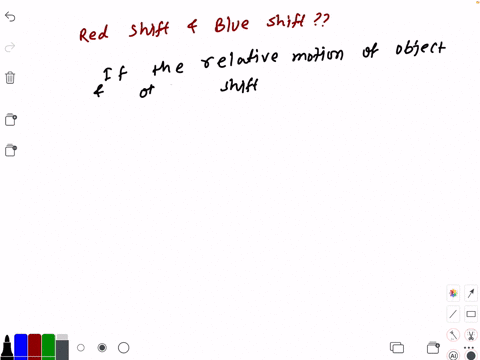 Red shift & Blue shift ??
If the relative motion of object
& ot shift